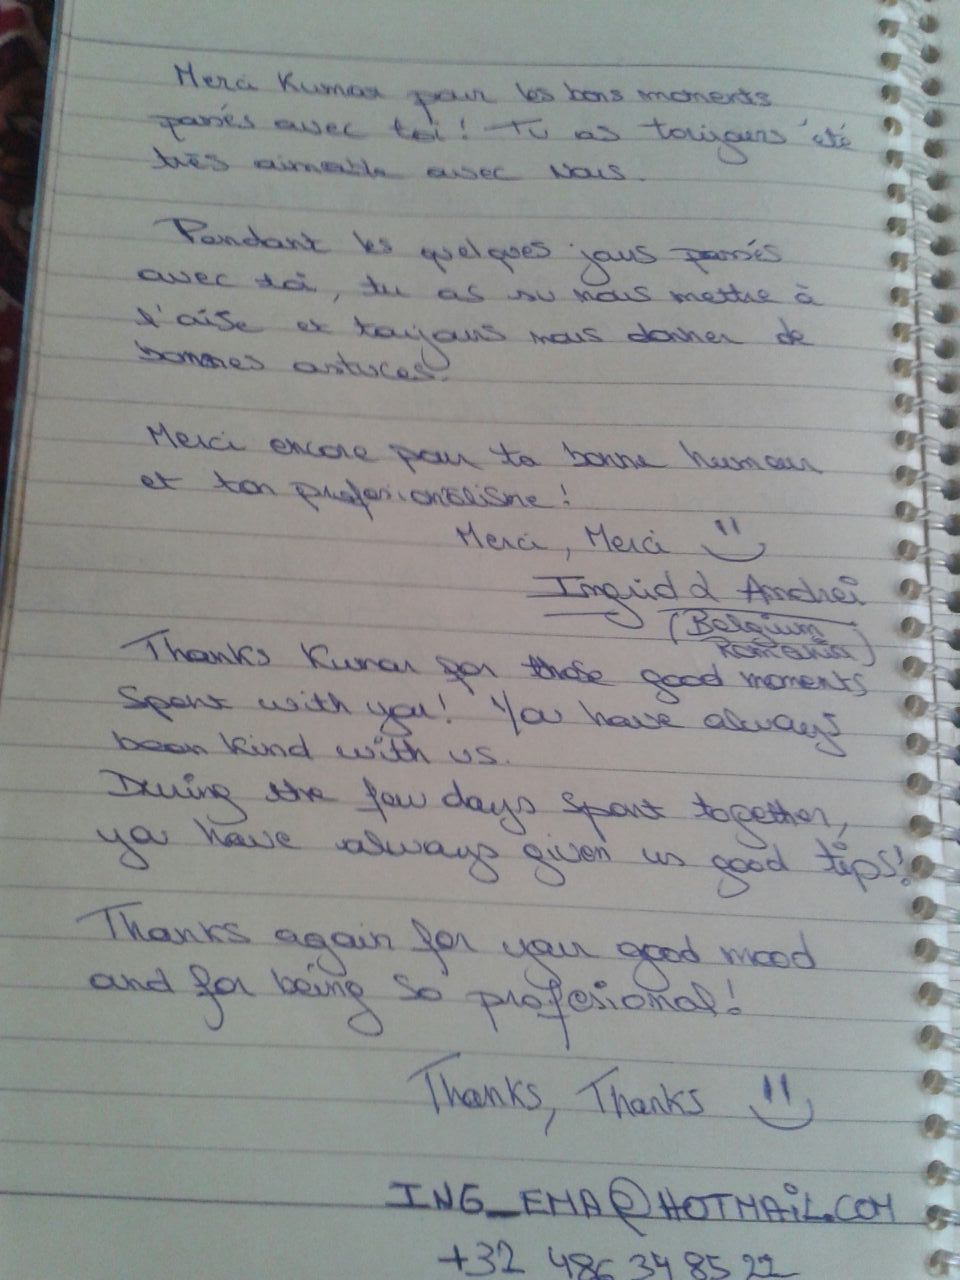 Merci Kumar pour les bons moments
passés avec toi! Tu as toujours été
très aimable avec nous.
Pendant les quelques jours passés
avec toi, tu as su nous mettre à
l'aise et toujours nous donner de
bonnes astuces.
Merci encore pour ta bonne humeur
et ton profesionalisme!
Merci, Merci
Ingrid & Andrei
(Belgium
Romania)
Thanks Kumar for those good moments
Spent with you! You have always
been kind with us.
During the few days spent together,
you have always given us good tips!
Thanks again for your good mood
and for being so profesional!
Thanks, Thanks
ING_EMA@HOTMAiL.COM
+32 486 34 85 22